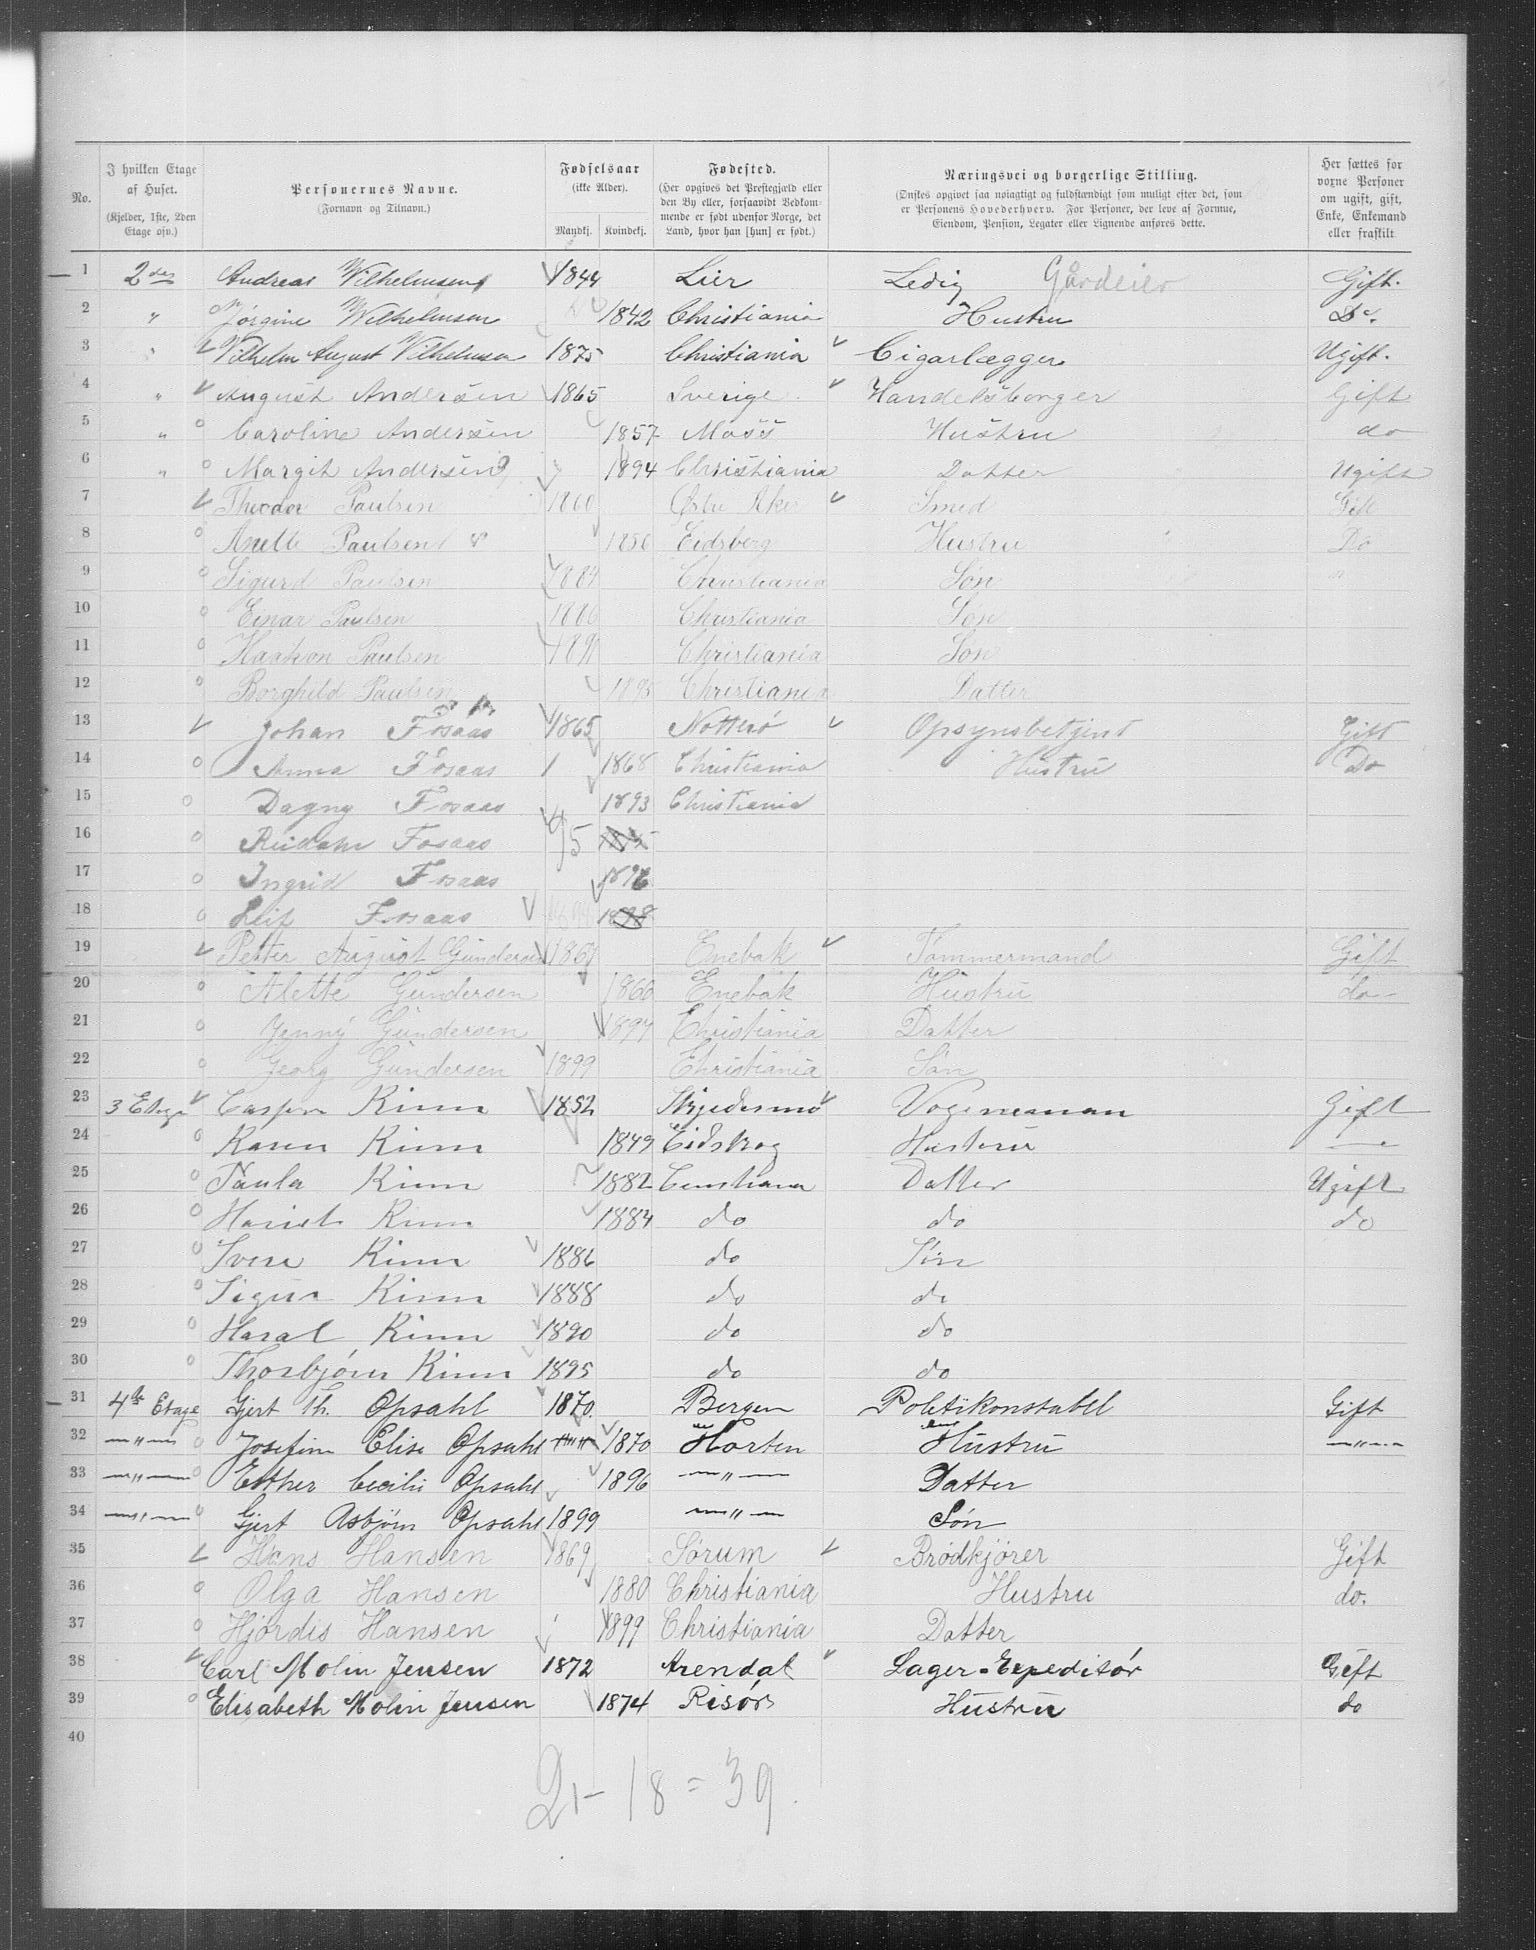 No. I hvilken Etage af Huset. (Kjelder, 1ste, 2den Etage osv.) Personernes Navne. (Fornavn og Tilnavn.) Fødselsaar (ikke Alder). Mandkj. Kvindekj. Fødested. (Her opgives det Prestegjæld eller den By eller, forsaavidt Bedkommende er født udenfor Norge, det Land, hvor han [hun] er født.) Næringsvei og borgerlige Stilling. (Ønskes opgivet saa nøiagtigt og fuldstændigt som muligt efter det, som er Personens Hovederhverv. For Personer, der leve af Formue, Eiendom, Pension, Legater eller Lignende anføres dette. Her sættes for voxne Personer om ugift, gift, Enke, Enkemand eller fraskilt
1 2den Andreas Wilhelmsen 1844 Lier Ledig Gårdeier Gift.
2 " Jørgine Wilhelmsen 1842 Christiania Hustru Do.
3 " Vilhelm August Vilhelmsen 1875 Christiania Cigarlægger Ugift.
4 " August Andersen 1865 Sverige. Handelsborger Gift
5 " Caroline Andersen 1857 Moss Hustru do
6 " Margit Andersen 1894 Christiania Datter Ugift
7 Theodor Paulsen 1860 Østre Aker Smed Gift
8 Anette Paulsen 1856 Eidsberg Hustru Do
9 Sigurd Paulsen 1884 Christiania Søn "
10 Einar Paulsen 1886 Christiania Søn
11 Haakon Paulsen 1891 Christiania Søn
12 Borghild Paulsen 1895 Christiania Datter
13 Johan Fosaas 1865 Notterø Opsynsbetjent Gift
14 Anna Fosaas 1868 Christiania Hustru Do
15 Dagny Fosaas 1893 Christiania
16 Fosaas 95
17 Ingrid Fosaas 1896
18 Leif Fosaas 1898
19 Petter August Gundersen 1867 Enebak Tømmermand Gift
20 Alette Gundersen 1866 Enebak Hustru do
21 Jenny Gundersen 1897 Christiania Datter
22 Georg Gundersen 1899 Christiania Søn
23 3 Etage Casper Rinn 1852 Skjedesmo Vognmann Gift
24 Karen Rinn 1849 Eidskog Hustru "
25 Paula Rinn 1882 Cristiania Datter Ugift
26 Hariet Rinn 1884 do do do
27 Sverre Rinn 1886 do Søn
28 Sigur Rinn 1888 do do
29 Haral Rinn 1890 do do
30 Thorbjørn Rinn 1895 do do
31 4de Etage Gjert Th. Opsahl 1870. Bergen Politikonstabel Gift
32 —"— Josefine Elise Opsahl 1870 Horten Hustru —"—
33 —"— Esther Cecilie Opsahl 1896 —"— Datter
34 —"— Gjert Asbjørn Opsahl 1899 —"— Søn
35 Hans Hansen 1869 Sørum Brødkjører Gift
36 Olga Hansen 1880 Christiania Hustru do.
37 Hjørdis Hansen 1899 Christiania Datter
38 Carl Molin Jensen 1872 Arendal Lager-Expeditør Gift
39 Elisabeth Molin Jensen 1874 Risør Hustru do
40
21 - 18 = 39.